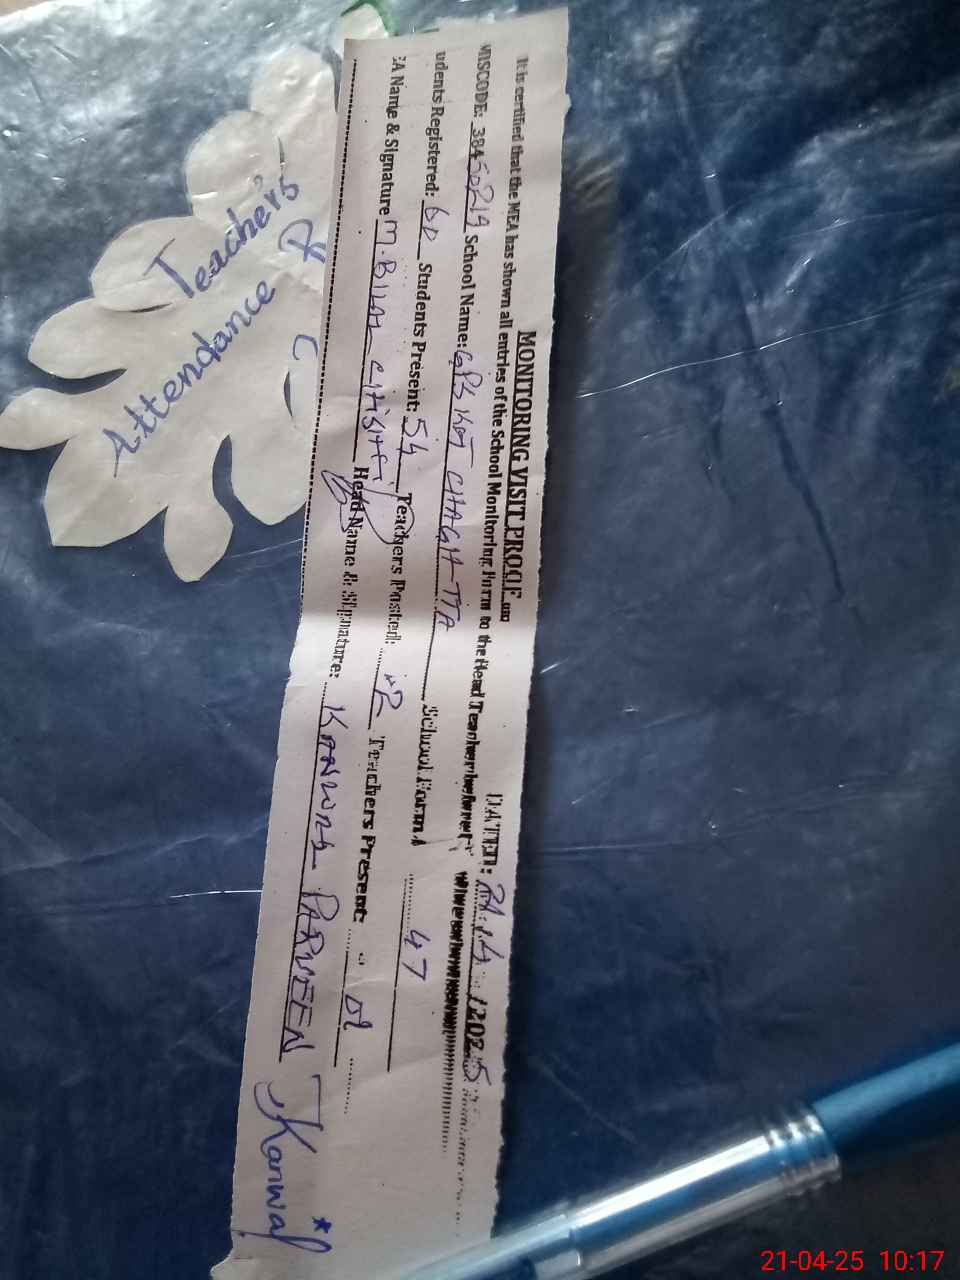 MONITORING VISIT PROOF
DATED: 21.4.2025
It is certified that the MEA has shown all entries of the School Monitoring Form to the Head Teacher before
MISCODE: 38450219 School Name: GPS KOT CHAGHTTA School Form A 47
udents Registered: 60 Students Present: 54 Teachers Posted: 02 Teachers Present: 02
EA Name & Signature M. BILAL CHISHTI Head Name & Signature: KANWAL PARVEEN Kanwal
Teacher's
Attendance
21-04-25 10:17